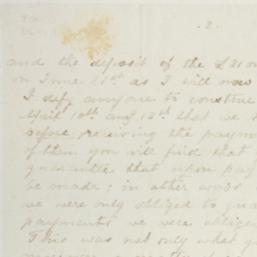 - 2 -
and the deposit of the £
on June 21st as I will now
I defy anyone to construe
April 10th and 12th that we
before receiving the paym
of them you will find that
guarantee that upon pay
be made; in other words
we were only obliged to gua
payments we were oblige
This was not only what